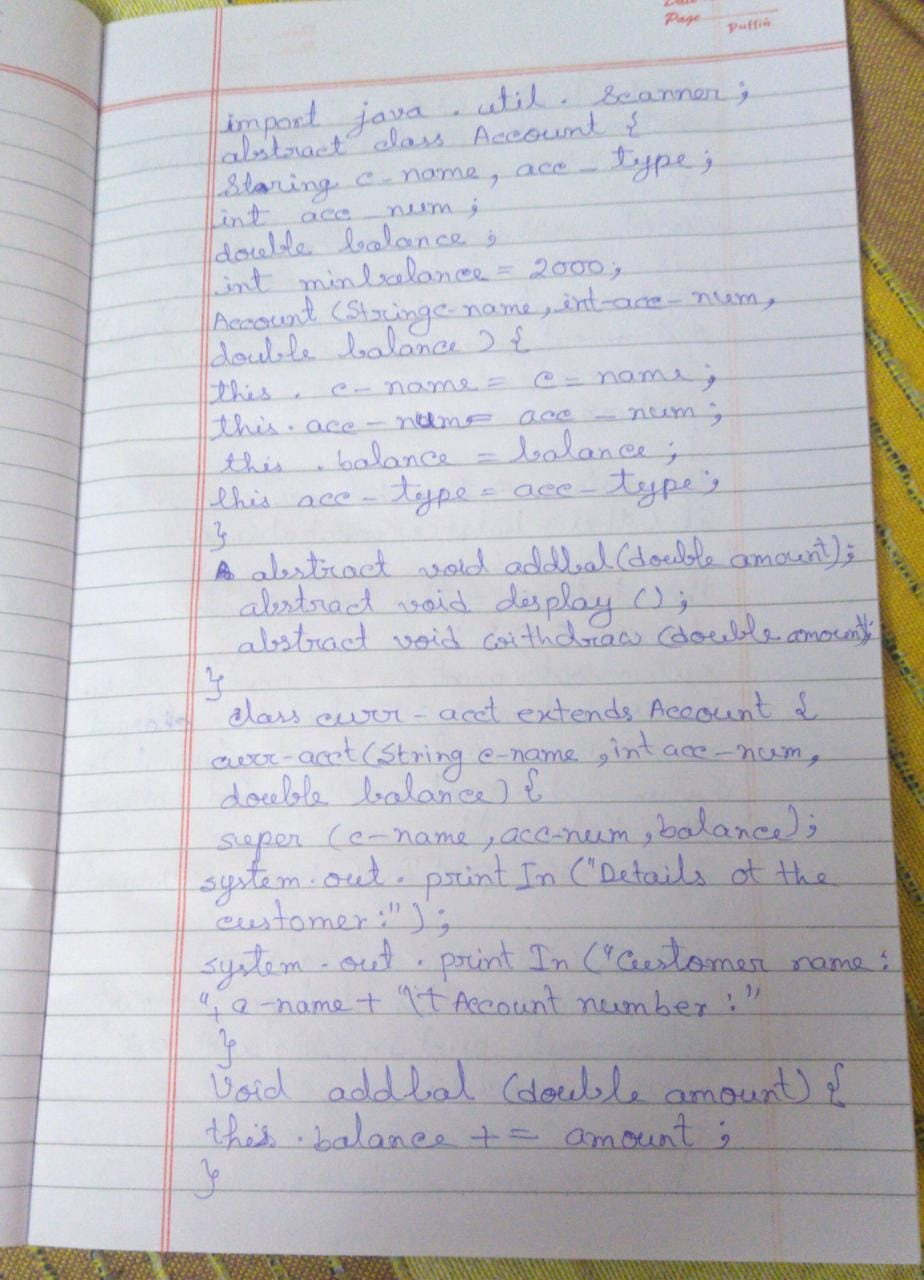 Page
Puffin
import java . util . Scanner ;
abstract class Account {
String c-name, acc - type ;
int acc num ;
double balance ;
int minbalance = 2000 ;
Account (String c-name, int-acc-num,
double balance ) {
this . c-name = c-name ;
this . acc-num = acc-num ;
this . balance = balance ;
this acc-type = acc-type ;
}
abstract void addbal (double amount) ;
abstract void display () ;
abstract void withdraw (double amount) ;
}
class curr-acct extends Account {
curr-acct (String c-name, int acc-num,
double balance) {
super (c-name, acc-num, balance) ;
system . out . print In ("Details ot the
customer :") ;
system . out . print In ("Customer name :
" + c-name + "\t Account number : "
}
Void addbal (double amount) {
this . balance += amount ;
}